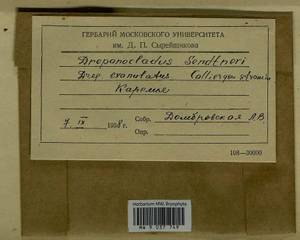 ГЕРБАРИЙ МОСКОВСКОГО УНИВЕРСИТЕТА
им. Д. П. Сырейщикова
Drepanocladus Sendtneri
Drep. exannulatus Calliergon
Карелия
7. IX 1958 г.
Собр. Домбровская А.В
Опр.
108—30000
Herbarium MW, Bryophyta
MW 9 037 749